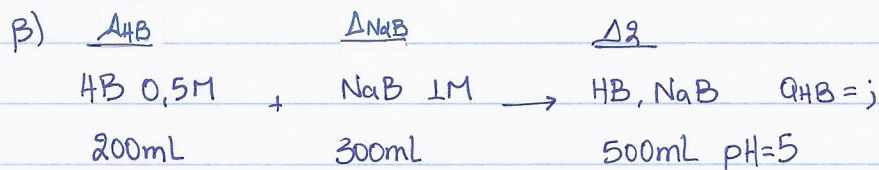 β) ΔHB ΔNaB Δ2
HB 0,5M + NaB 1M → HB, NaB αHB = ;
200mL 300mL 500mL pH=5